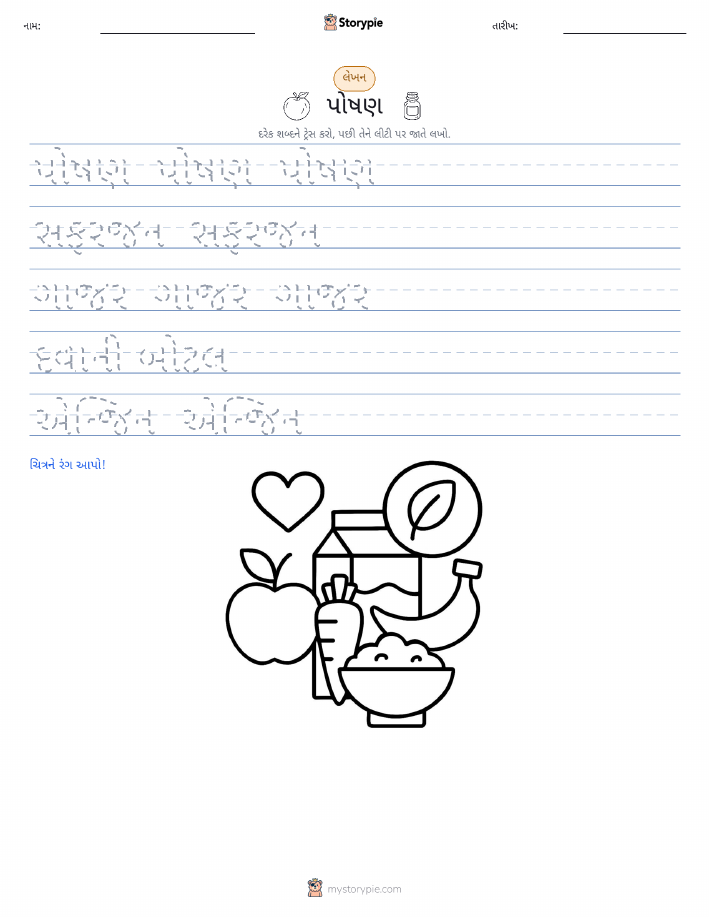 નામ: Storypie તારીખ:
લેખન
પોષણ
દરેક શબ્દને ટ્રેસ કરો, પછી તેને લીટી પર જાતે લખો.
પોષણ પોષણ પોષણ
સફરજન સફરજન
ગાજર ગાજર ગાજર
દવાની બોટલ
એન્જિન એન્જિન
ચિત્રને રંગ આપો!
mystorypie.com